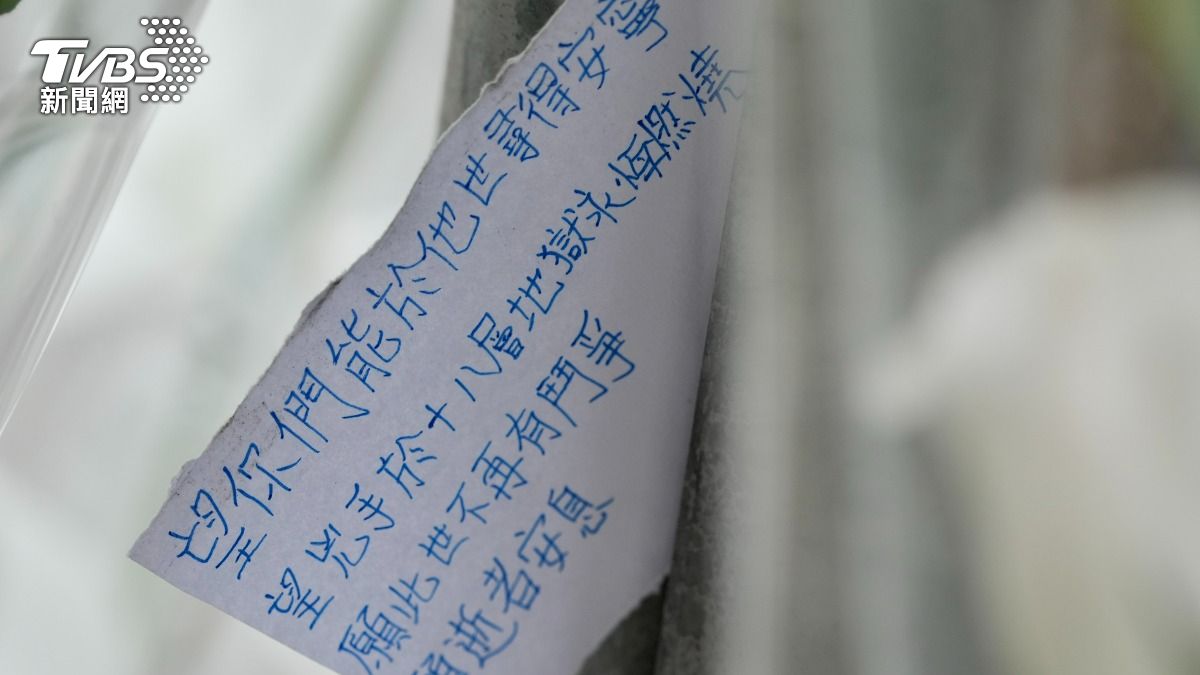 TVBS
新聞網
望你們能於他世尋得安寧
望兇手於十八層地獄求悔燃燒
願此世不再有鬥爭
願逝者安息